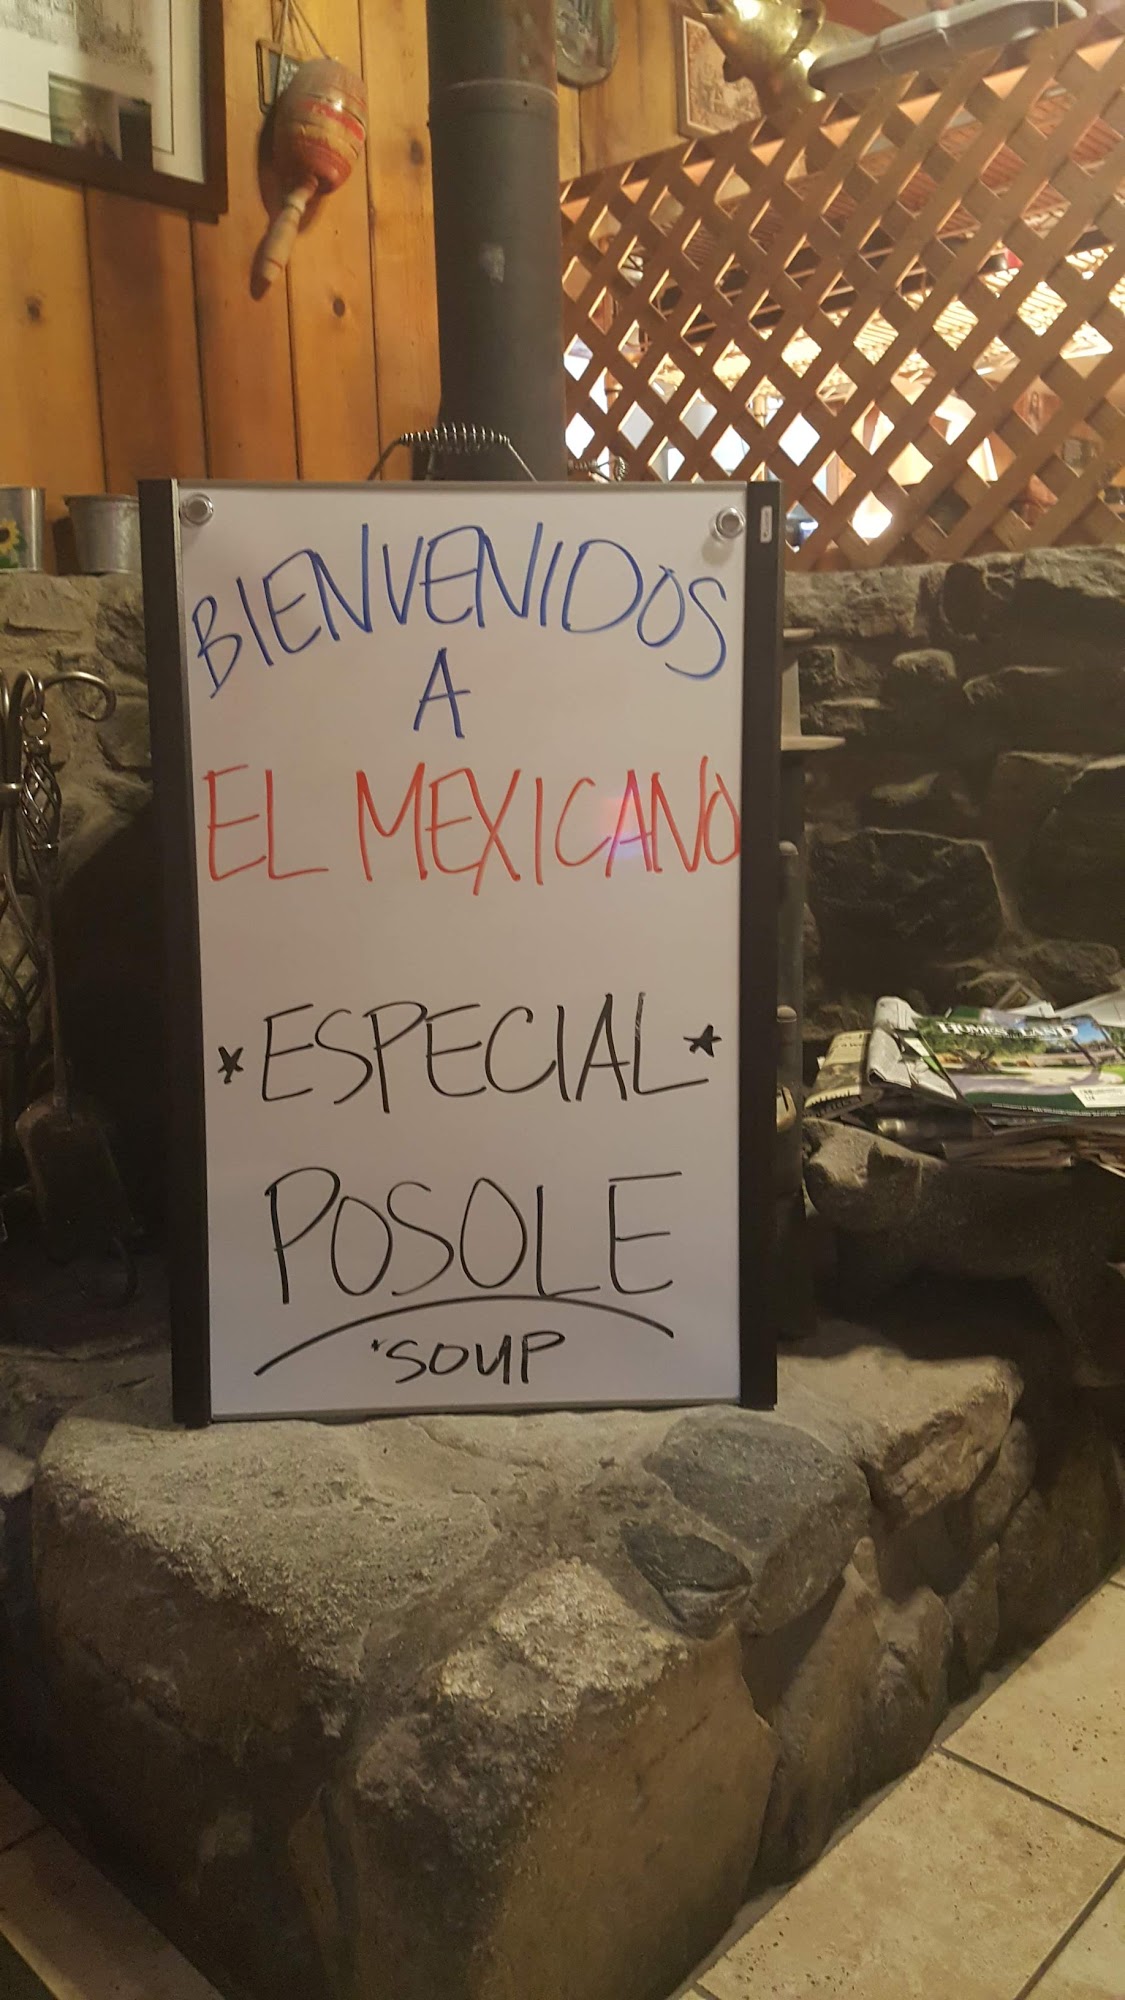 BIENVENIDOS
A
EL MEXICANO
*ESPECIAL*
POSOLE
*SOUP
HOMES LAND